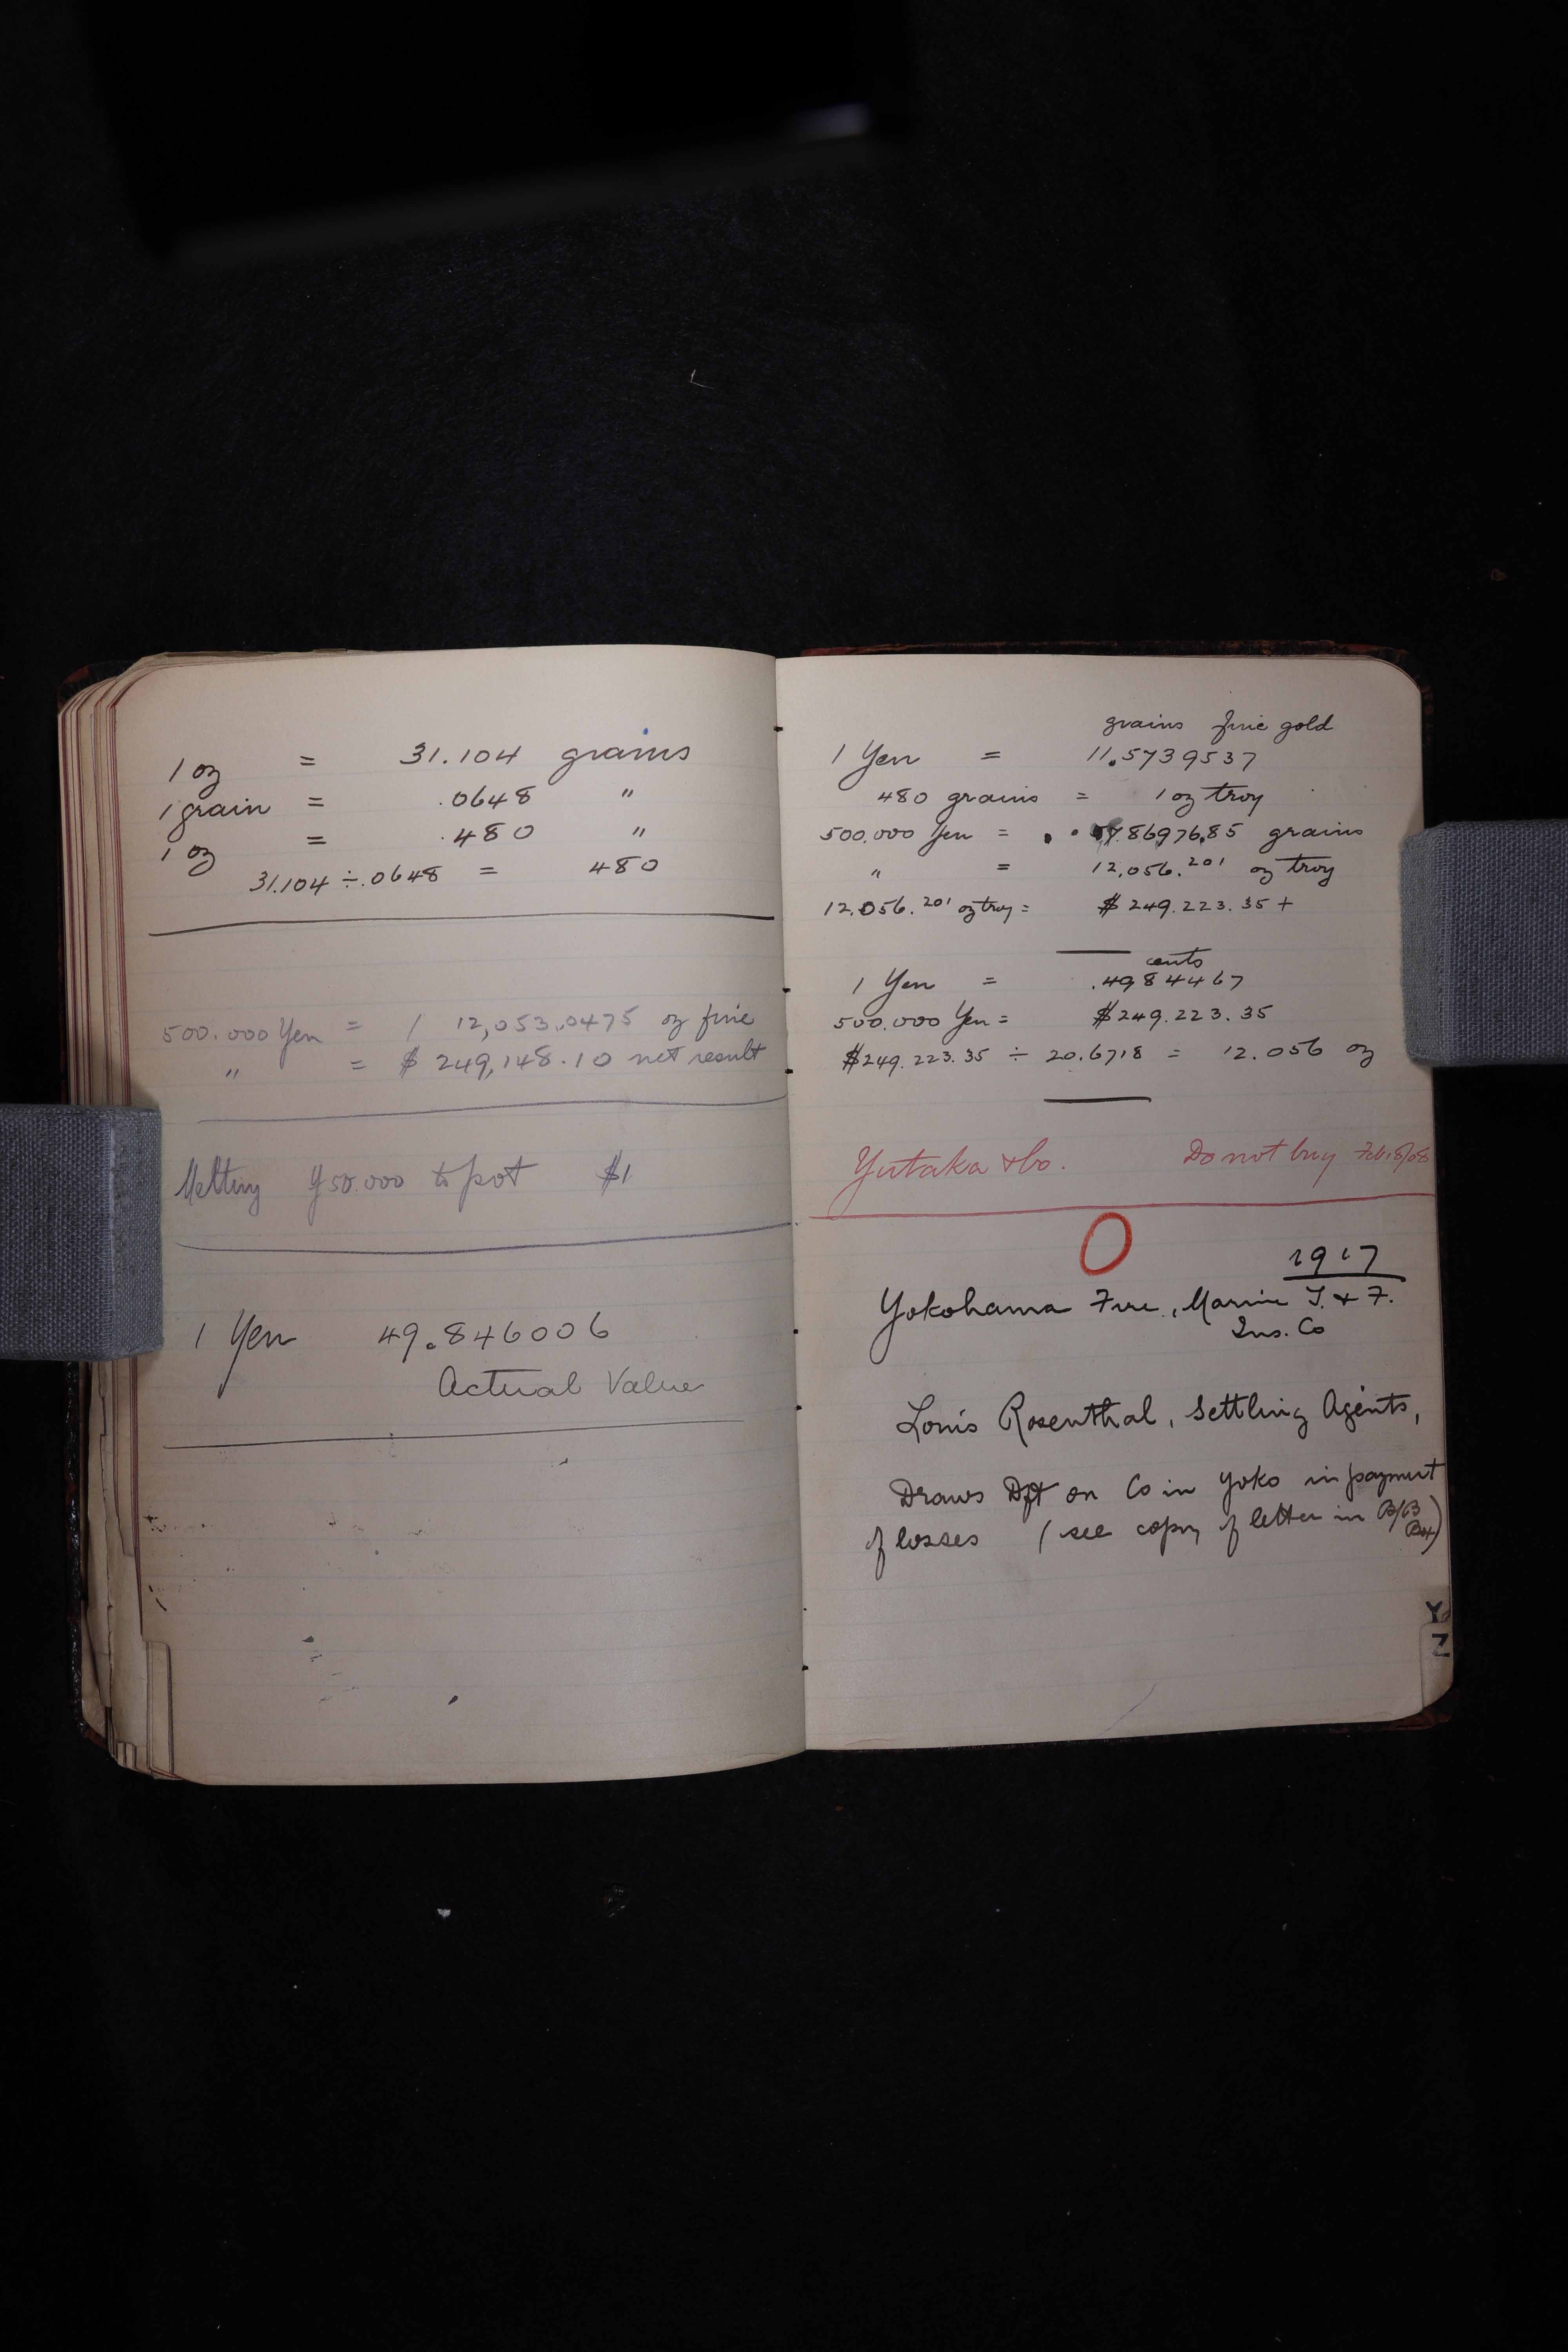 1 oz = 31.104 grains
1 grain = .0648 "
1 oz = .480 "
31.104 ÷ .0648 = 480
500.000 Yen = 12,053.0475 oz fine
" = $ 249,148.10 net result
Melting Y50.000 to pot $1
1 Yen 49.846006
Actual Value
grains fine gold
1 Yen = 11.5739537
480 grains = 1 oz troy
500.000 Yen = 86976.85 grains
" = 12,056.201 oz troy
12.056.201 oz troy = $ 249.223.35 +
cents
1 Yen = .4984467
500.000 Yen = $249.223.35
$249.223.35 ÷ 20.6718 = 12.056 oz
Yutaka & Co. Do not buy Feb. 8/08
1917
Yokohama Fire, Marine T. & F.
Ins. Co
Louis Rosenthal, Settling Agents,
Draws Dft on Co in Yoko in payment
of losses (see copy of letter in B/B
Y
Z